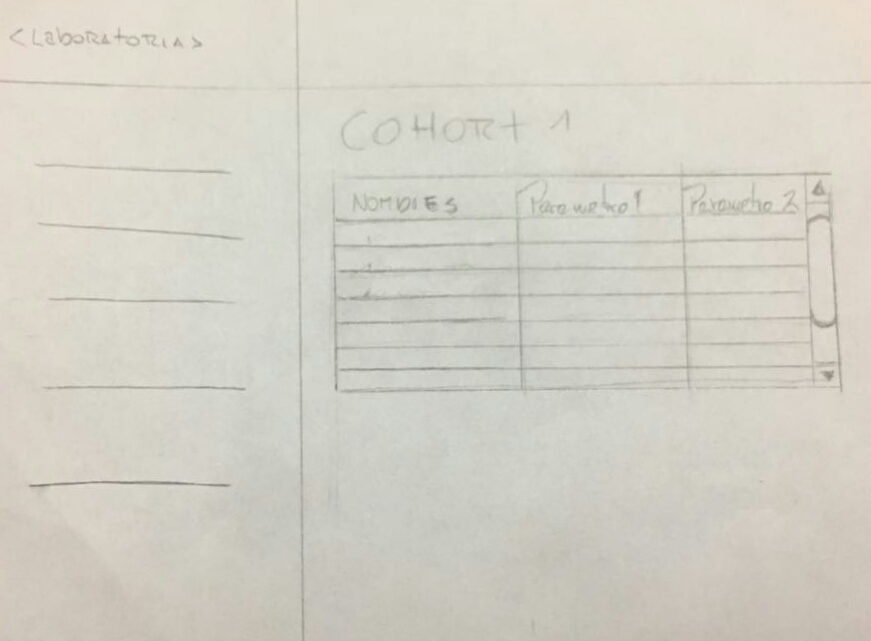 <LABORATORIA>
COHORT 1
NOMBRES Parametro 1 Parametro 2